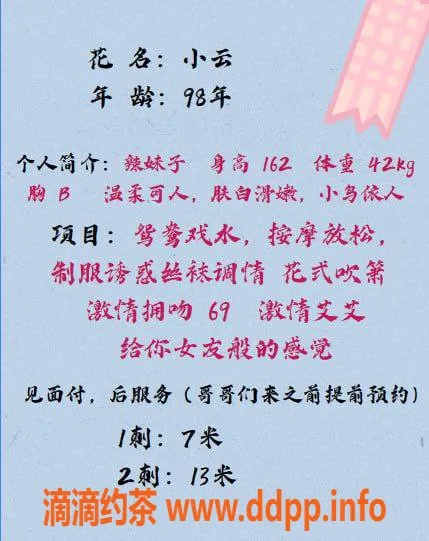 花 名：小云
年 龄：98年
个人简介：辣妹子 身高 162 体重 42kg
胸 B 温柔可人，肤白滑嫩，小鸟依人
项目：鸳鸯戏水，按摩放松，
制服诱惑丝袜调情 花式吹箫
激情拥吻 69 激情艾艾
给你女友般的感觉
见面付，后服务（哥哥们来之前提前预约）
1刺：7米
2刺：13米
滴滴约茶 www.ddpp.info